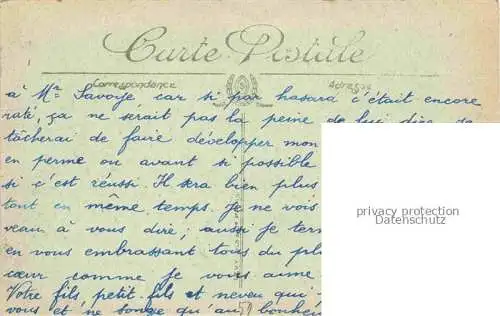 Carte Postale
Correspondance Adresse
à Mr Savoye car si par hasard c'était encore
raté, ça ne serait pas la peine de lui dire. Je
tâcherai de faire développer mon
en perme ou avant si possible
si c'est réussi. Il sera bien plus
tant en même temps. Je ne vois
veau à vous dire ; aussi je ter
en vous embrassant tous du pl
cœur comme je vous aime
Votre fils, petit-fils et neveu qui
vous et ne songe qu'au bonheu
privacy protection
Datenschutz